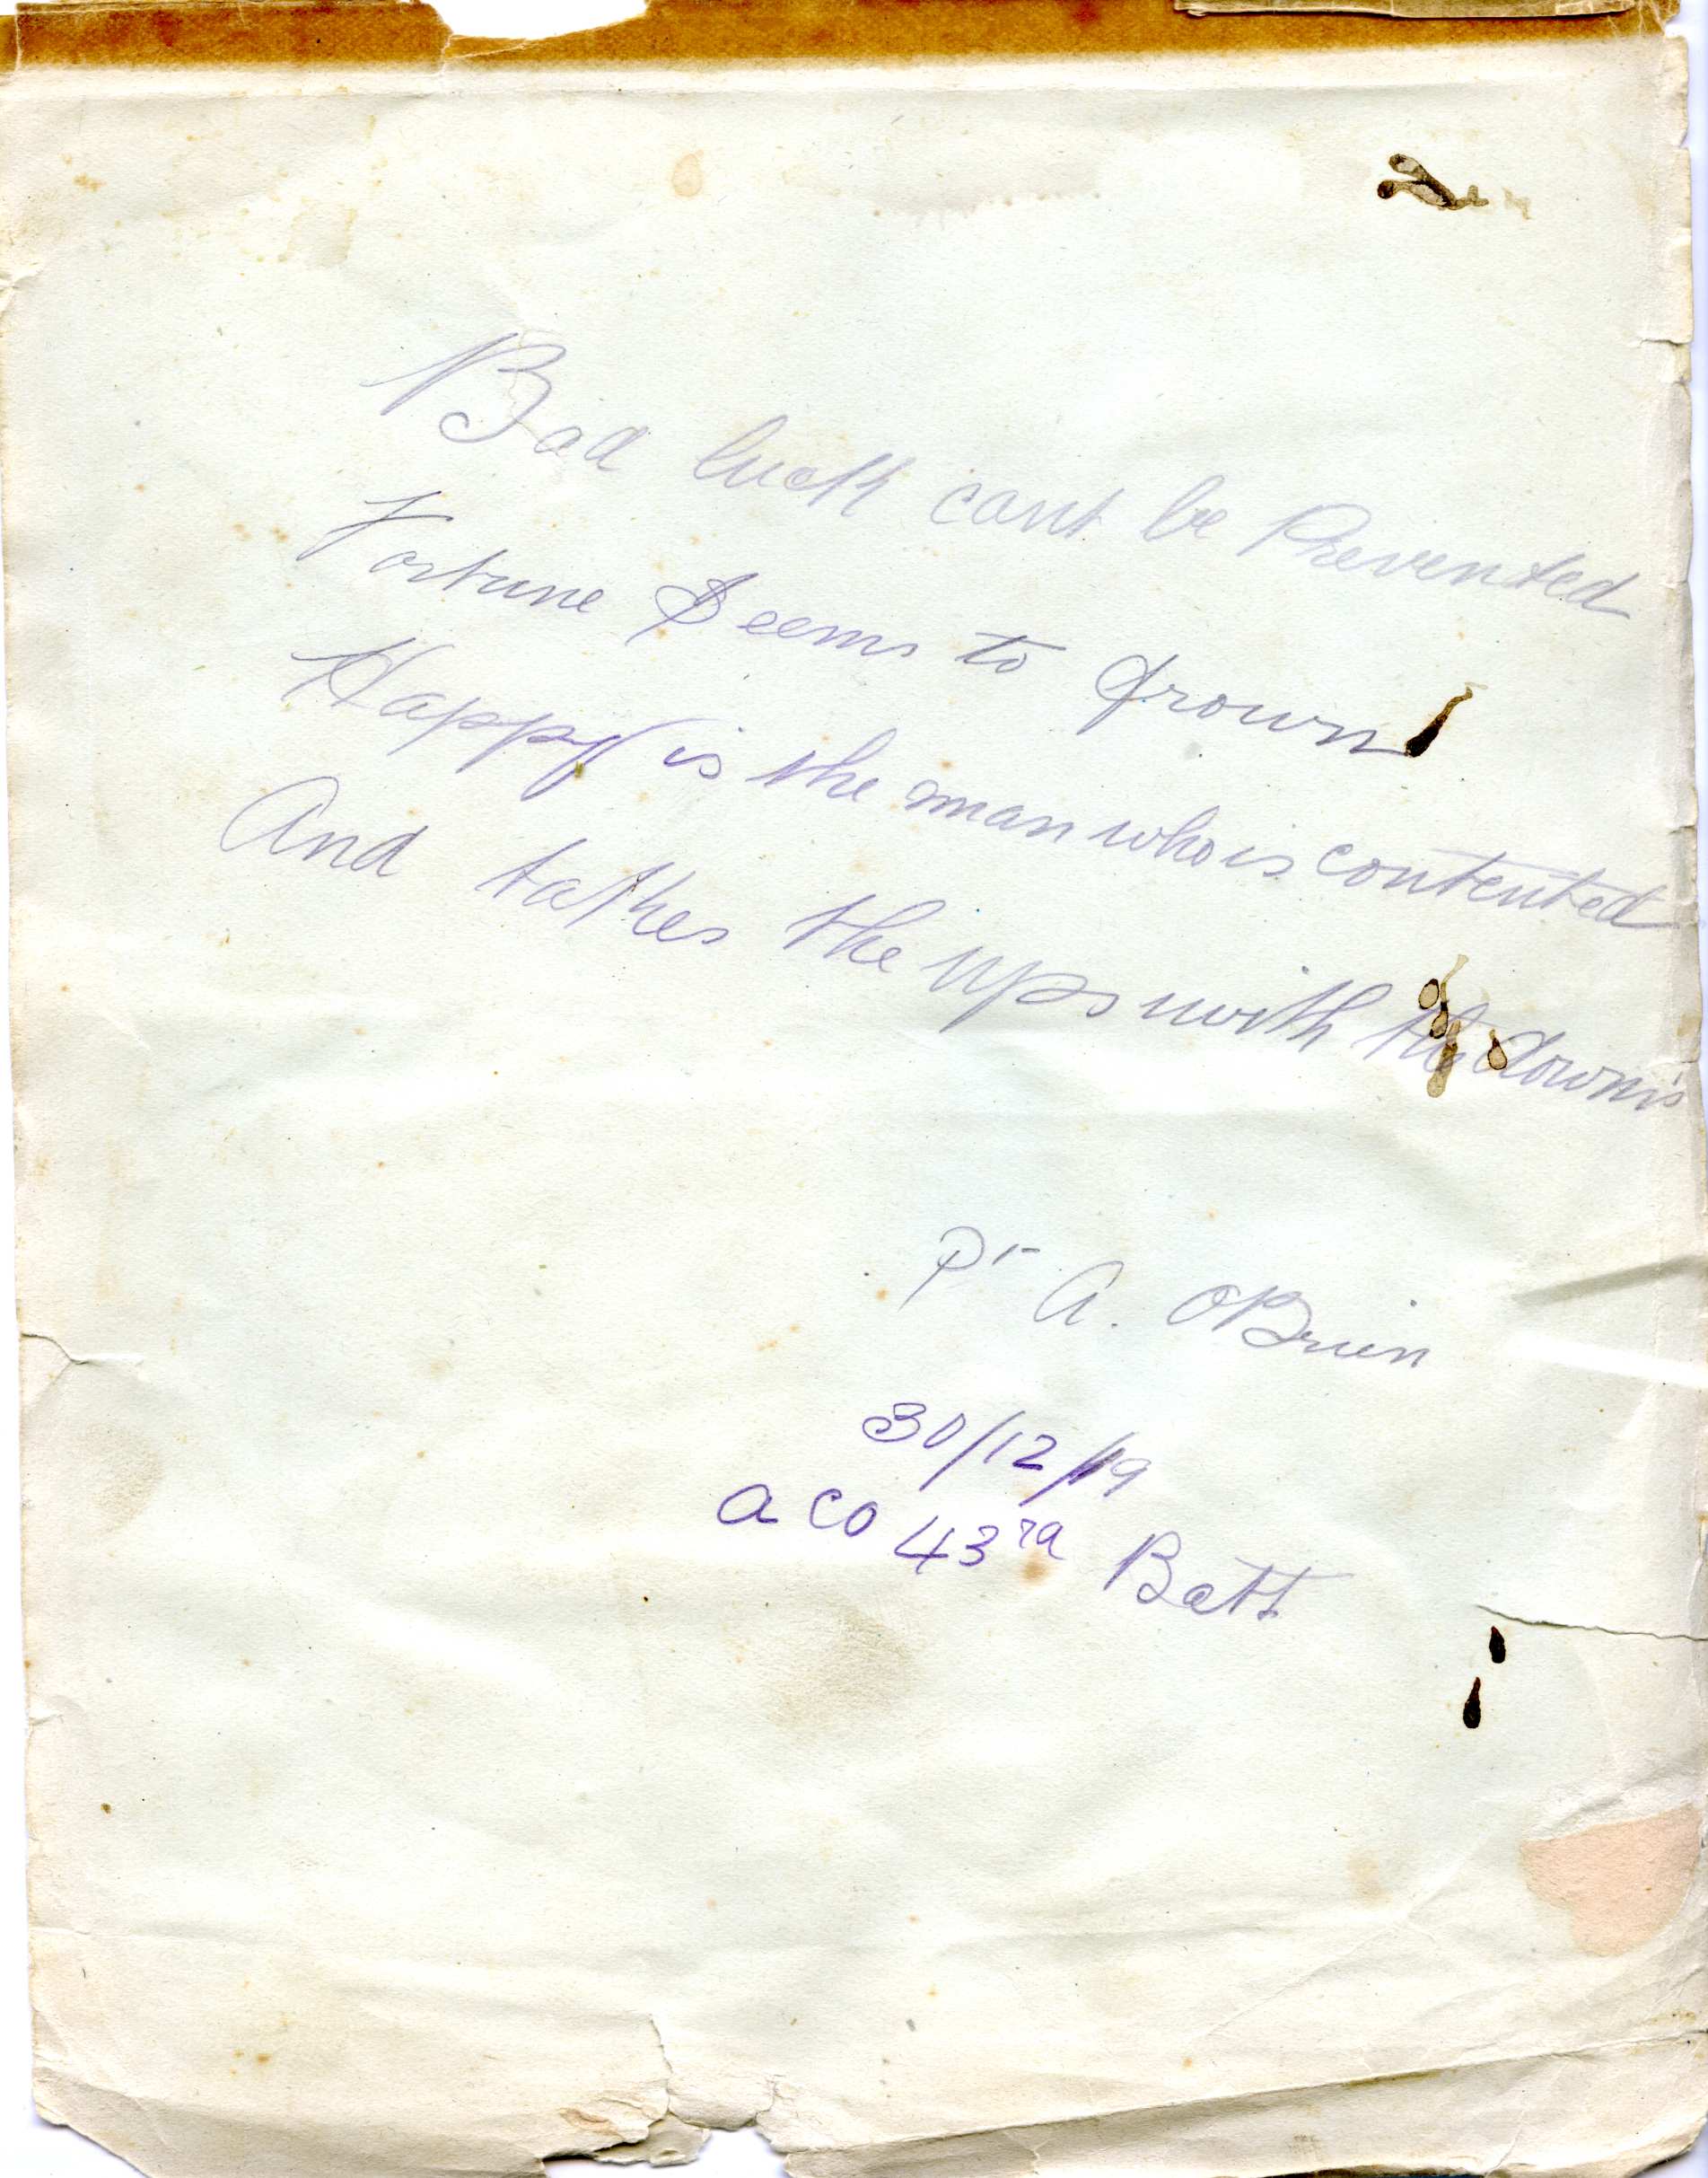 Bad luck cant be Prevented
Fortune Seems to frown
Happy is the man who is contented
And takes the ups with the down's
Pr A. OBrien
30/12/19
a co 43rd Batt